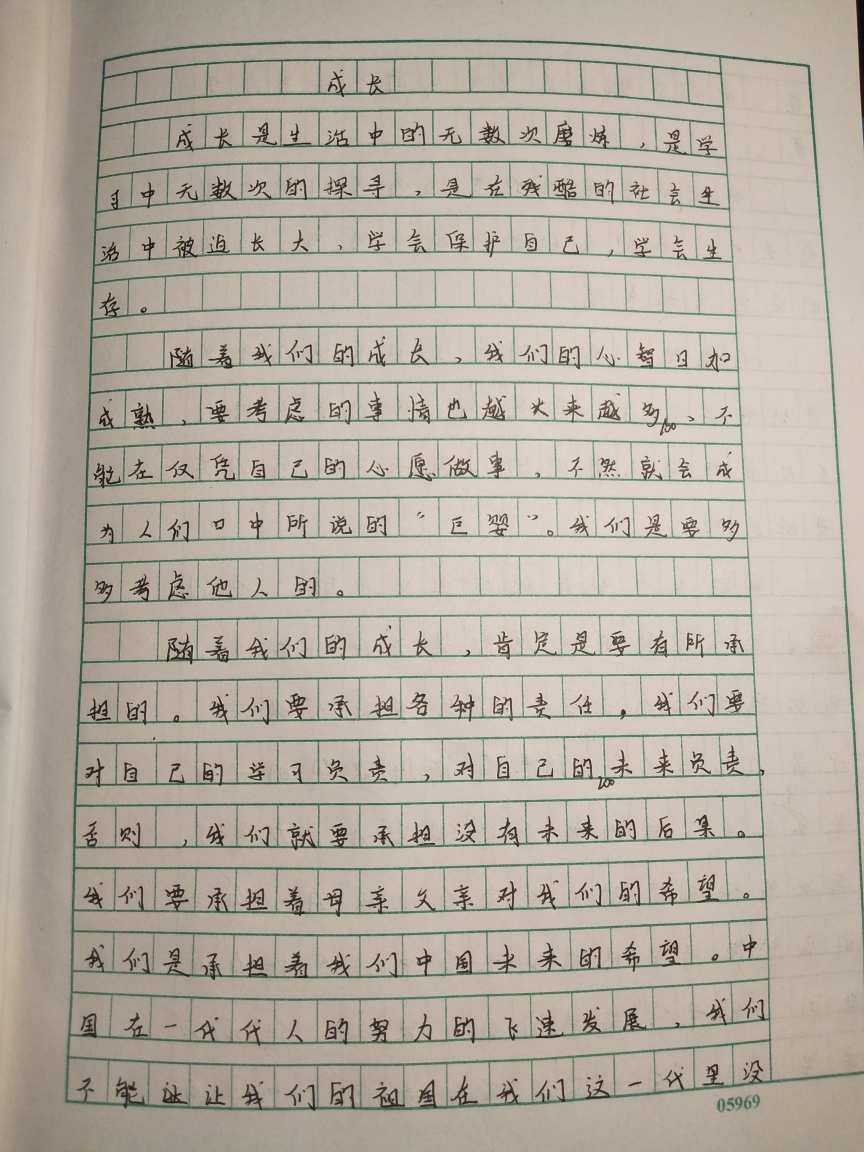 成长
成长是生活中的无数次磨炼，是学
习中无数次的探寻，是在残酷的社会生
活中被迫长大，学会保护自己，学会生
存。
随着我们的成长，我们的心智日加
成熟，要考虑的事情也越大来越多，不
100
能在仅凭自己的心愿做事，不然就会成
为人们口中所说的“巨婴”。我们是要多
多考虑他人的。
随着我们的成长，肯定是要有所承
担的。我们要承担各种的责任，我们要
对自己的学习负责，对自己的未来负责，
200
否则，我们就要承担没有未来的后果。
我们要承担着母亲父亲对我们的希望。
我们是承担着我们中国未来的希望。中
国在一代代人的努力的飞速发展，我们
不能让我们的祖国在我们这一代里没
05969